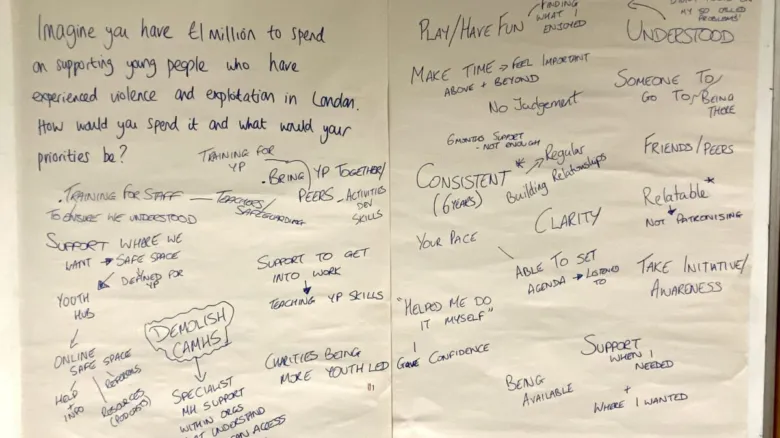 Imagine you have £1 million to spend
on supporting young people who have
experienced violence and exploitation in London.
How would you spend it and what would your
priorities be?
TRAINING FOR
YP
BRING YP TOGETHER/
PEERS - ACTIVITIES
DEV
SKILLS
TRAINING FOR STAFF
TO ENSURE WE UNDERSTOOD
TEACHERS/
SAFEGUARDING
SUPPORT WHERE WE
WANT → SAFE SPACE
DEFINED FOR
YP
YOUTH
HUB
ONLINE
SAFE SPACE
HELP
+
INFO
REFERRALS
RESOURCES
(PODCASTS)
SUPPORT TO GET
INTO WORK
TEACHING YP SKILLS
DEMOLISH
CAMHS
SPECIALIST
MH SUPPORT
WITHIN ORGS
UNDERSTAND
CAN ACCESS
CHARITIES BEING
MORE YOUTH LED
PLAY/HAVE FUN
FINDING
WHAT I
ENJOYED
MY SO CALLED
PROBLEMS
UNDERSTOOD
MAKE TIME → FEEL IMPORTANT
ABOVE + BEYOND
No Judgement
SOMEONE TO
GO TO
BEING
THERE
6 MONTHS SUPPORT
- NOT ENOUGH
CONSISTENT *
(6 YEARS)
Regular
Building Relationships
FRIENDS/PEERS
Relatable *
NOT PATRONISING
YOUR PACE
CLARITY
ABLE TO SET
AGENDA → LISTENED
TO
TAKE INITIATIVE/
AWARENESS
"HELPED ME DO
IT MYSELF"
GAVE CONFIDENCE
SUPPORT
WHEN I
NEEDED
+
WHERE I WANTED
BEING
AVAILABLE